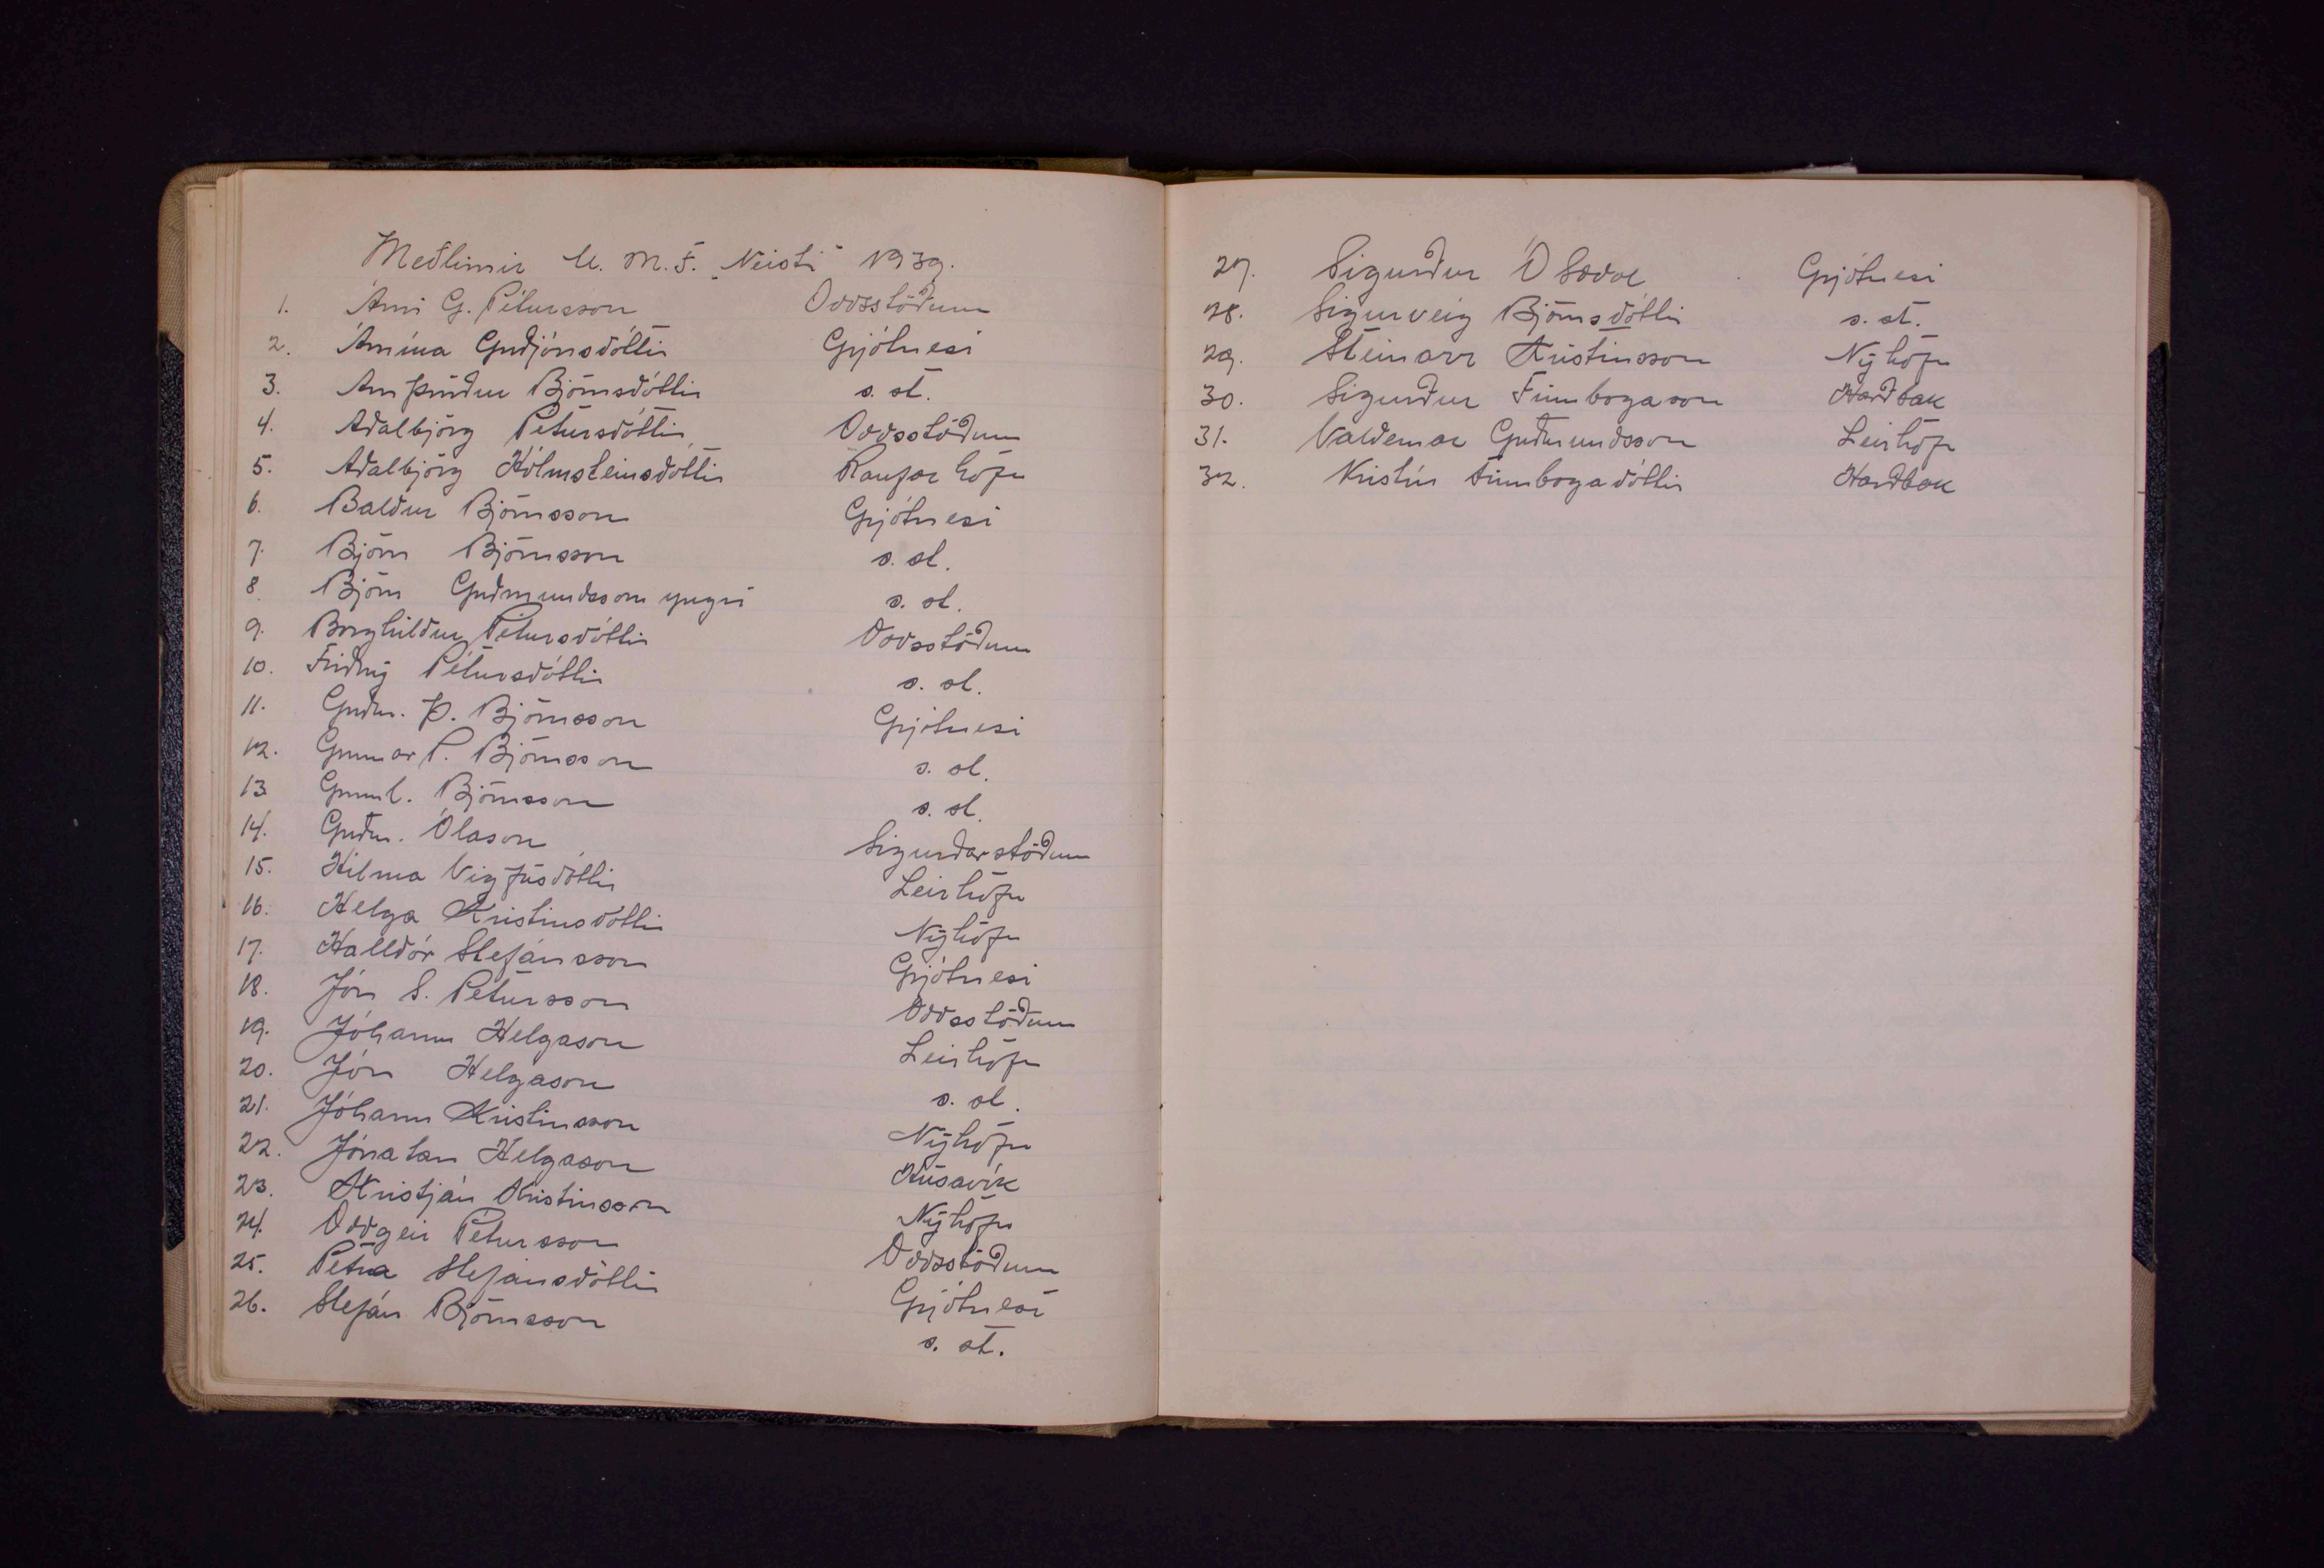 Meðlimir U. M. F. "Neisti" 1939.
1. Árni G. Pétursson Oddsstöðum
2. Árnína Guðjónsdóttir Grjótnesi
3. Arnþrúður Björnsdóttir s. st.
4. Aðalbjörg Pétursdóttir Oddsstöðum
5. Aðalbjörg Hólmsteinsdóttir Raufarhöfn
6. Baldur Björnsson Grjótnesi
7. Björn Björnsson s. st.
8. Björn Guðmundsson yngri s. st.
9. Borghildur Pétursdóttir Oddsstöðum
10. Friðný Pétursdóttir s. st.
11. Guðm. Þ. Björnsson Grjótnesi
12. Gunnar P. Björnsson s. st.
13. Gunnl. Björnsson s. st.
14. Guðm. Ólason Sigurðarstöðum
15. Hilma Vigfúsdóttir Leirhöfn
16. Helga Kristinsdóttir Nýhöfn
17. Halldór Stefánsson Grjótnesi
18. Jón S. Pétursson Oddsstöðum
19. Jóhann Helgason Leirhöfn
20. Jón Helgason s. st.
21. Jóhann Kristinsson Nýhöfn
22. Jónatan Helgason Húsavík
23. Kristján Kristinsson Nýhöfn
24. Oddgeir Pétursson Oddsstöðum
25. Petra Stefánsdóttir Grjótnesi
26. Stefán Björnsson s. st.
27. Sigurður Grjótnesi
28. Sigurveig Björnsdóttir s. st.
29. Steinarr Kristinsson Nýhöfn
30. Sigurður Finnbogason Harðbak
31. Valdemar Guðmundsson Leirhöfn
32. Kristín Finnbogadóttir Harðbak